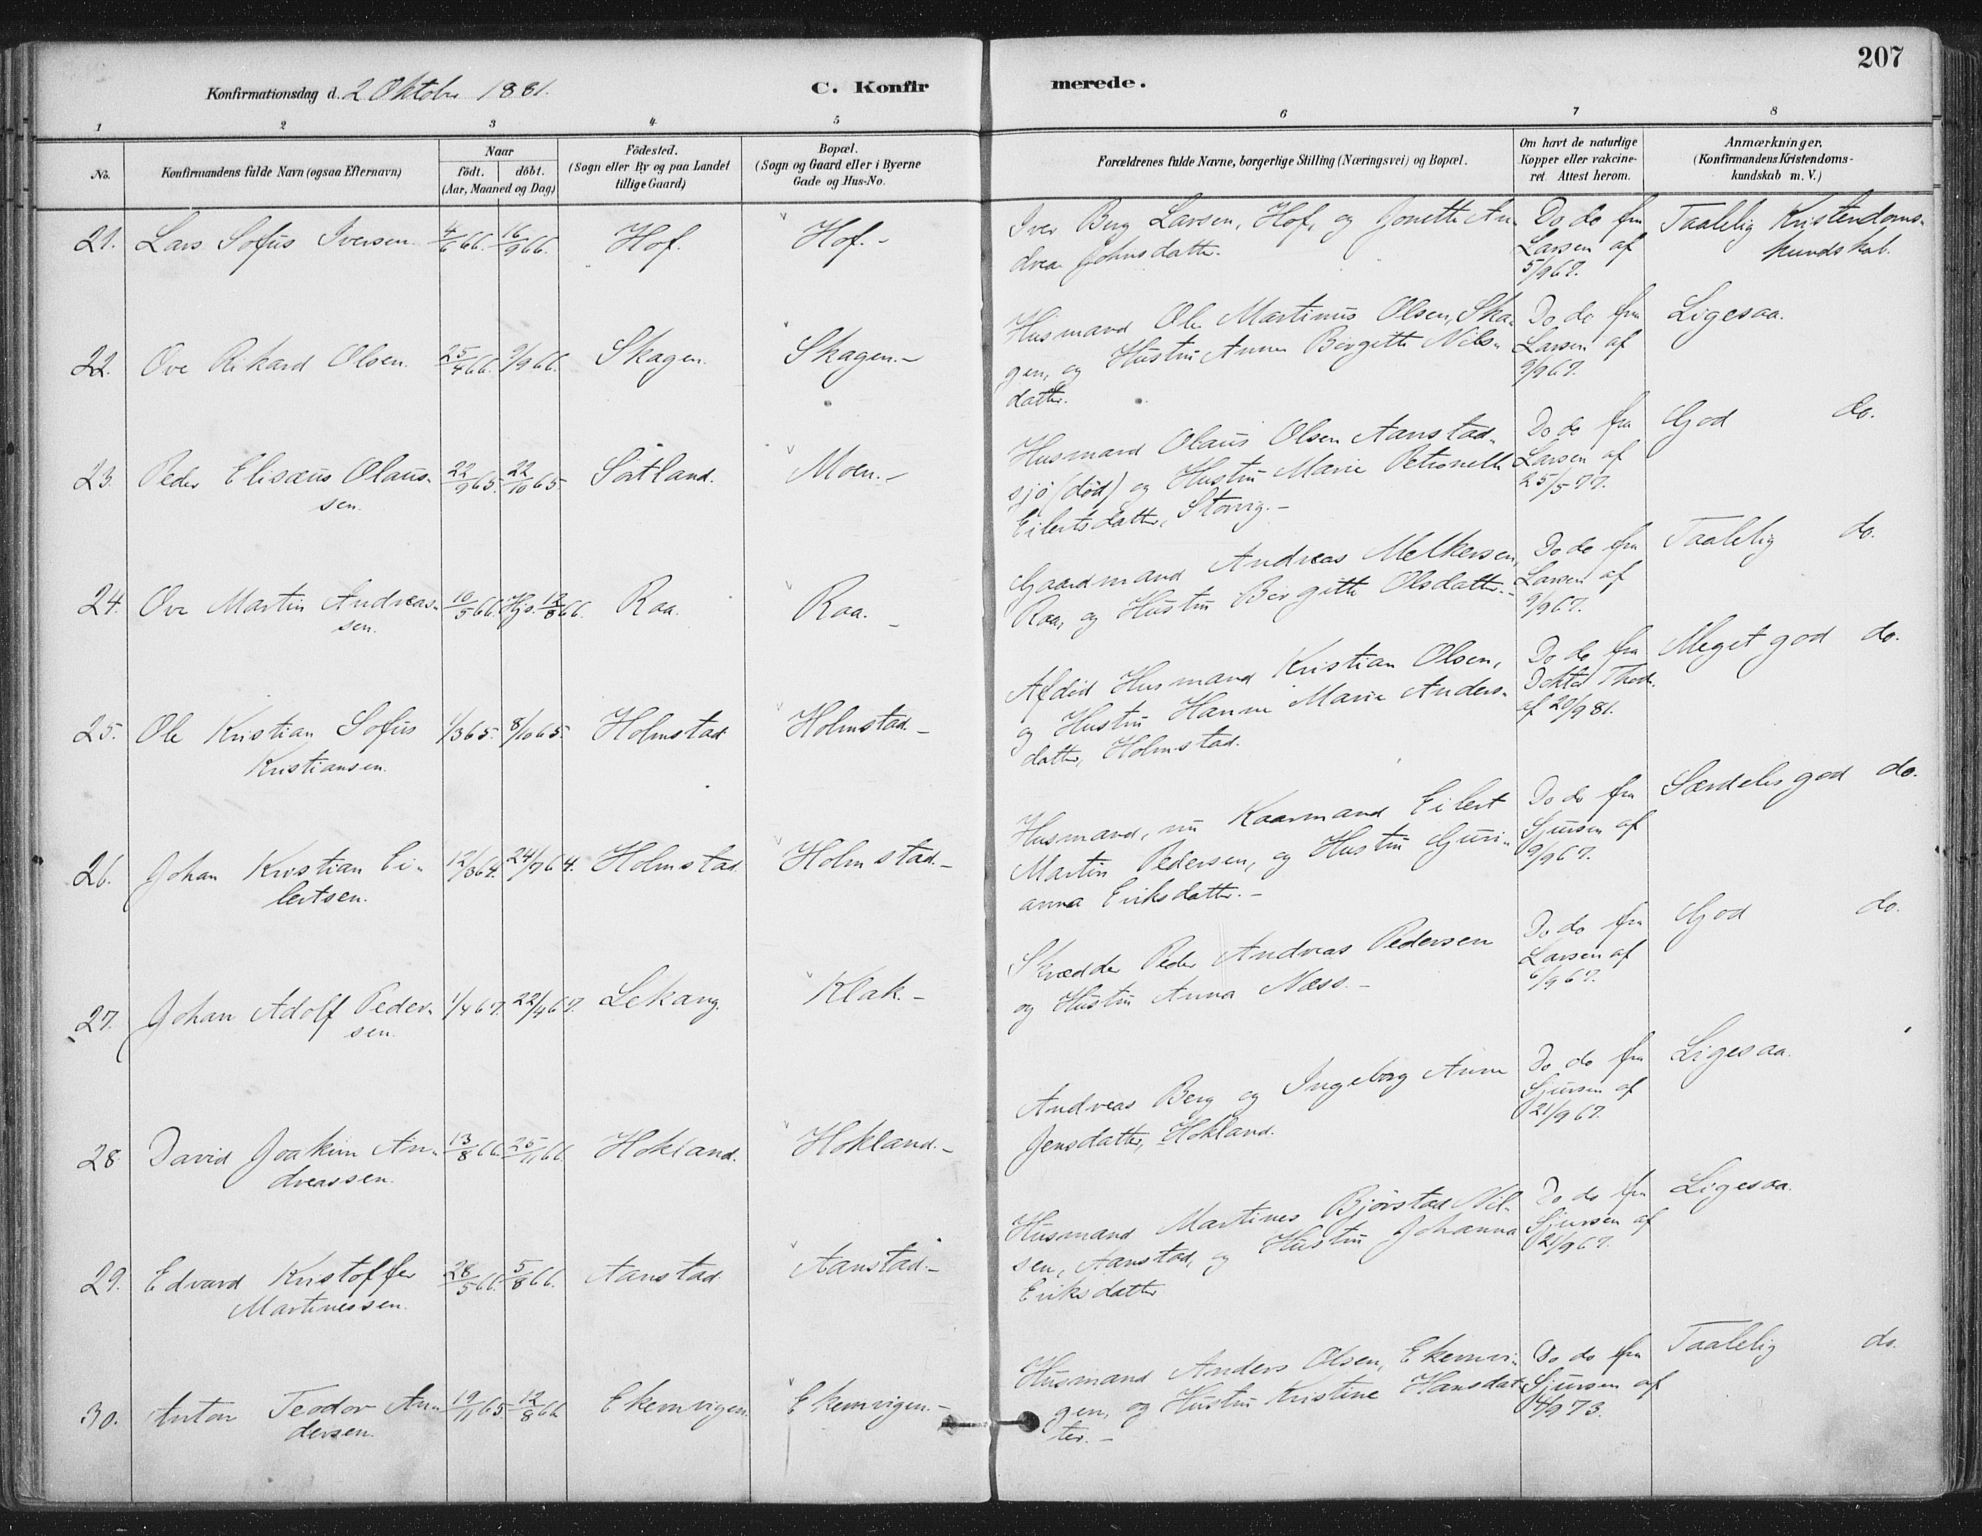 207
Konfirmationsdag d. 2 Oktober 1881.
C. Konfirmerede.
1 2 3 4 5 6 7 8
No.
Konfirmandens fulde Navn (ogsaa Efternavn)
Naar
födt. döbt.
(Aar, Maaned og Dag)
Födested.
(Sogn eller By og paa Landet
tillige Gaard)
Bopæl.
(Sogn og Gaard eller i Byerne
Gade og Hus-No.
Forældrenes fulde Navne, borgerlige Stilling (Næringsvei) og Bopæl.
Om havt de naturlige
Kopper eller vakcine-
ret. Attest herom.
Anmærkninger.
(Konfirmandens Kristendoms-
kundskab m. V.)
21. Lars Sofus Iversen. 4/6 66. 16/9 66. Hof. Hof.-
Iver Berg Larsen, Hof, og Jonette An-
drea Johnsdatter.
Do do fra
Larsen af
5/9 67.
Taalelig Kristendoms-
kundskab.
22. Ove Rikard Olsen. 25/4 66. 9/9 66. Skagen. Skagen.-
Husmand Ole Martinus Olsen, Ska-
gen, og Hustru Anne Bergitte Nils-
datter.
Do do fra
Larsen af
9/9 67.
Ligesaa.
23. Peder Elisæus Olaus-
sen.
22/9 65. 22/10 65 Sortland. Moen.-
Husmand Olaus Olsen Aanstad-
sjø (død) og Hustru Marie Petronelle
Eilertsdatter, Storvig.-
Do do fra
Larsen af
25/5 77.
God do.
24. Ove Martin Andreas-
sen.
10/5 66. Hjs. 12/8 66. Roa. Roa.-
Gaardmand Andreas Melkersen,
Roa, og Hustru Bergitte Olsdatter.-
Do do fra
Larsen af
9/9 67.
Taalelig do.
25. Ole Kristian Sofus
Kristiansen.
1/3 65. 8/10 65. Holmstad Holmstad.-
Afdød Husmand Kristian Olsen,
og Hustru Hanne Marie Anders-
datter, Holmstad.
Do do fra
Doktor Thode
af 20/9 81.
Meget god do.
26. Johan Kristian Ei-
lertsen.
12/3 64. 24/7 64. Holmstad. Holmstad.-
Husmand, nu Kaarmand Eilert
Martin Pedersen, og Hustru Guri-
anna Eriksdatter.-
Do do fra
Sjursen af
9/9 67.
Særdeles god do.
27. Johan Adolf Peder-
sen.
1/4 67. 22/4 67. Lekang. Klak.-
Skrædder Peder Andreas Pedersen
og Hustru Anna Næss.-
Do do fra
Larsen af
6/9 67.
God do.
28. David Joakim An-
dreassen.
13/8 66. 25/11 66. Hokland. Hokland.-
Andreas Berg og Ingeborg Anne
Jensdatter, Hokland.
Do do fra
Sjursen af
21/9 67.
Ligesaa.
29. Edvard Kristoffer
Martinessen.
28/5 66. 5/8 66. Aanstad Aanstad.-
Husmand Martines Bjørstad Nil-
sen, Aanstad, og Hustru Johanna
Eriksdatter
Do do fra
Sjursen af
21/9 67.
Ligesaa.
30. Anton Teodor An-
dersen.
19/11 65. 12/8 66 Ekemvigen. Ekemvigen.-
Husmand Anders Olsen, Ekemvi-
gen, og Hustru Kristine Hansdat-
ter.-
Do do fra
Sjursen af
4/9 73.
Taalelig do.